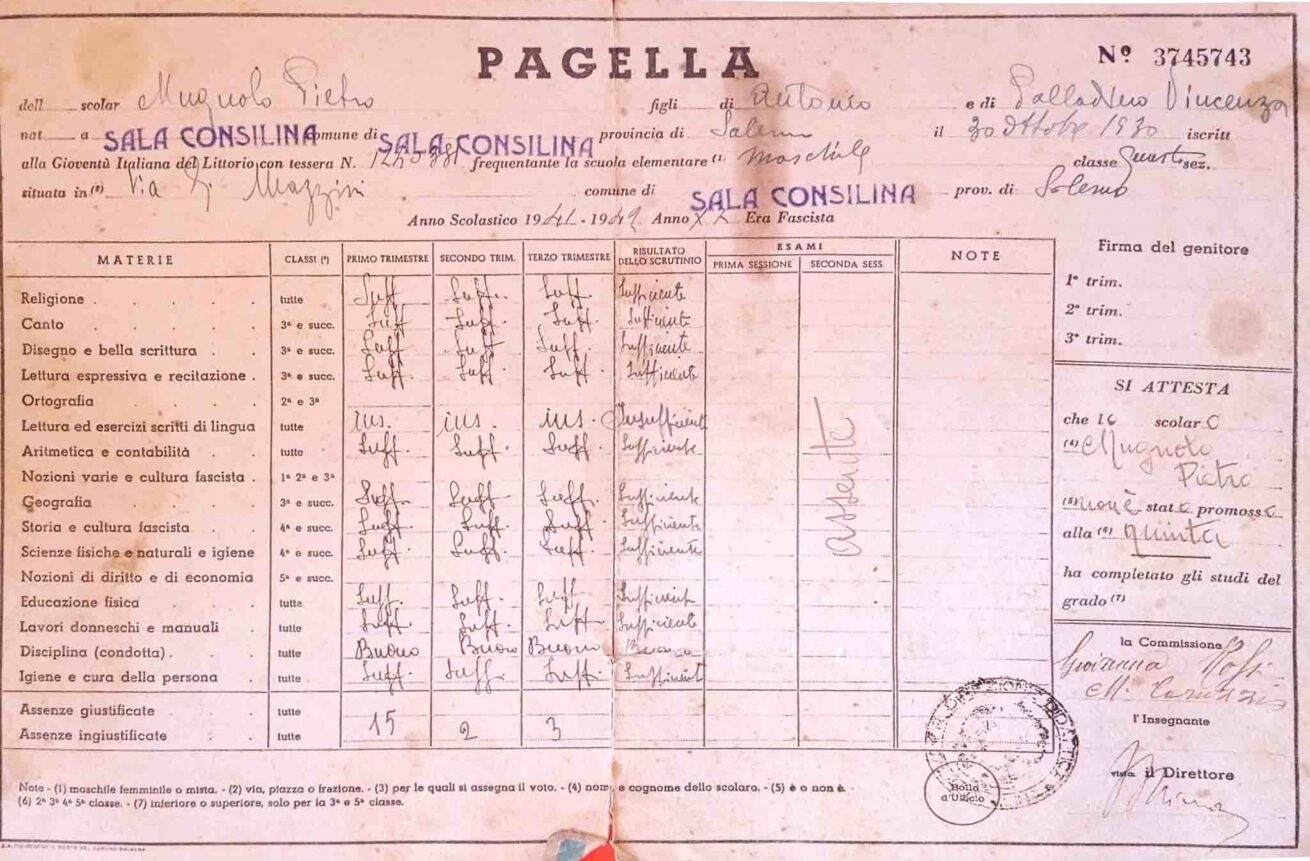 PAGELLA
Nº 3745743
dell scolar Mugnolo Pietro figli di Antonio e di Palladino Vincenza
nat a SALA CONSILINA comune di SALA CONSILINA provincia di Salerno il 30 Ottobre 1930 iscritt
alla Gioventù Italiana del Littorio con tessera N. frequentante la scuola elementare (1) Maschile classe Quarta sez.
situata in (2) Via G. Mazzini comune di SALA CONSILINA prov. di Salerno
Anno Scolastico 1941 - 1942 Anno XX Era Fascista
MATERIE CLASSI (3) PRIMO TRIMESTRE SECONDO TRIM. TERZO TRIMESTRE RISULTATO DELLO SCRUTINIO ESAMI PRIMA SESSIONE SECONDA SESS. NOTE
Religione tutte Suff. Suff. Suff. Sufficiente
Canto 3ª e succ. Suff Suff. Suff. Sufficiente
Disegno e bella scrittura 3ª e succ. Suff Suff Suff. Sufficiente
Lettura espressiva e recitazione 3ª e succ. Suff. Suff. Suff. Sufficiente
Ortografia 2ª e 3ª
Lettura ed esercizi scritti di lingua tutte ins. ins. ins. Insufficiente
Aritmetica e contabilità tutte Suff. Suff. Suff. Sufficiente
Nozioni varie e cultura fascista 1ª 2ª e 3ª
Geografia 3ª e succ. Suff. Suff. Suff. Sufficiente
Storia e cultura fascista 4ª e succ. Suff Suff. Suff. Sufficiente
Scienze fisiche e naturali e igiene 4ª e succ. Suff. Suff. Suff. Sufficiente
Nozioni di diritto e di economia 5ª e succ.
Educazione fisica tutte Suff. Suff. Suff. Sufficient
Lavori donneschi e manuali tutte Suff. Suff. Suff. Sufficiente
Disciplina (condotta) tutte Buono Buono Buono Buono
Igiene e cura della persona tutte Suff. Suff. Suff. Sufficient
Assenze giustificate tutte 15 2 3
Assenze ingiustificate tutte
assente
Firma del genitore
1º trim.
2º trim.
3º trim.
SI ATTESTA
che lo scolaro
(4) Mugnolo
Pietro
(5) non è stato promosso
alla (6) quinta
ha completato gli studi del
grado (7)
la Commissione
Giovanna
M.
l'Insegnante
visto il Direttore
DIREZIONE DIDATTICA
Bollo
d'Ufficio
Note - (1) maschile femminile o mista. - (2) via, piazza o frazione. - (3) per le quali si assegna il voto. - (4) nome e cognome dello scolaro. - (5) è o non è. -
(6) 2ª 3ª 4ª 5ª classe. - (7) inferiore o superiore, solo per la 3ª e 5ª classe.